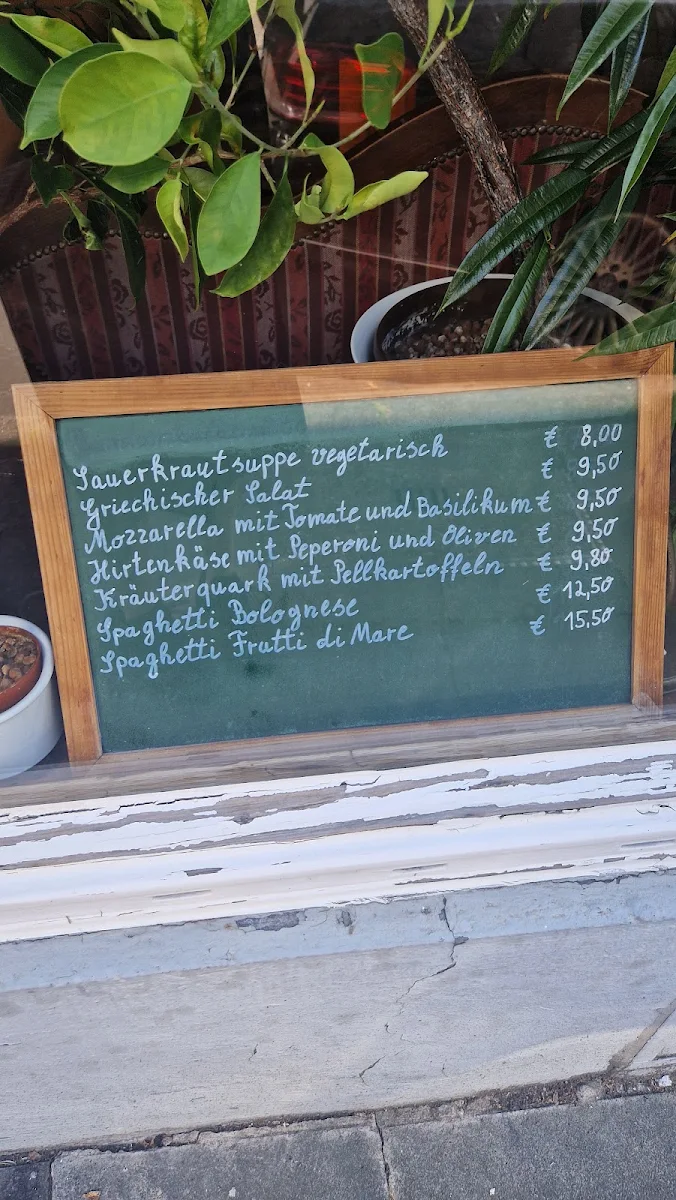 Sauerkrautsuppe vegetarisch € 8,00
Griechischer Salat € 9,50
Mozzarella mit Tomate und Basilikum € 9,50
Hirtenkäse mit Peperoni und Oliven € 9,50
Kräuterquark mit Pellkartoffeln € 9,80
Spaghetti Bolognese € 12,50
Spaghetti Frutti di Mare € 15,50